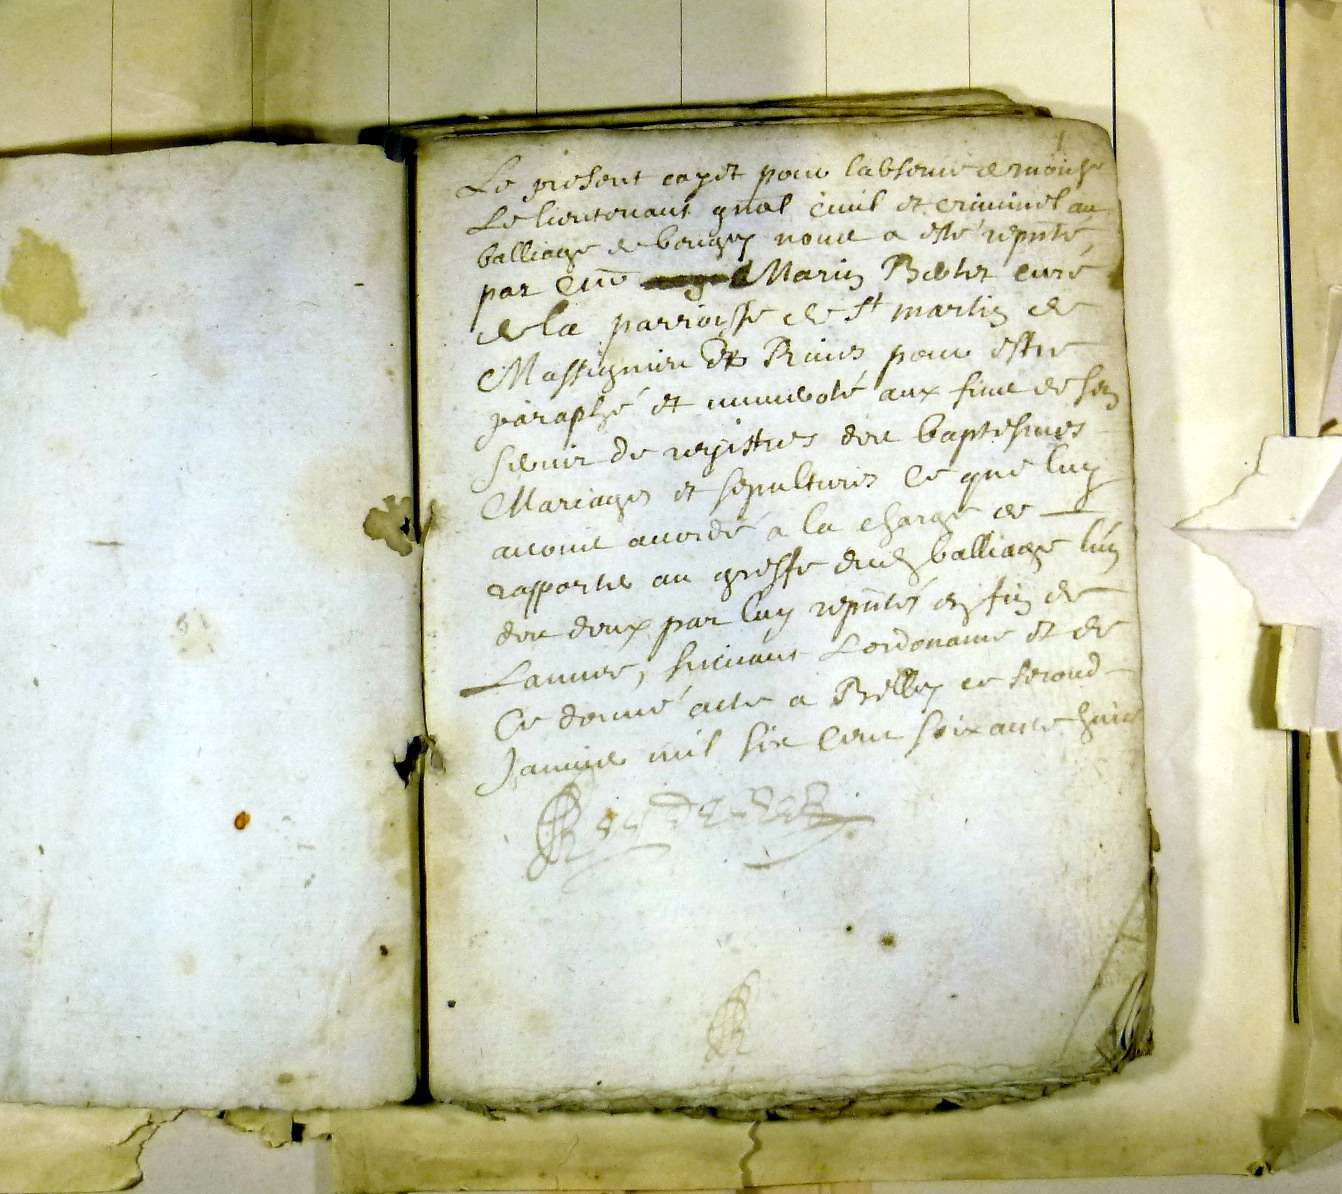 Le present cayet pour labsence de monsr
Le lieutenant gnal civil et criminel au
balliage de beugey nous a esté repnté,
par Mre Marin Bolet curé
de la parroisse de st martin de
Massignieu de Rives pour estre
paraphé et numeroté aux fins de sen
servir de registres des baptesmes
Mariages et sepultures Ce que luy
avons accordé a la charge de
rapporter au greffe dud balliage lun
des deux par luy repntés en fin de
Lannee, suivant Lordonance et de
Ce donné acte a Belley ce second
Janvier mil six cent soixante huit